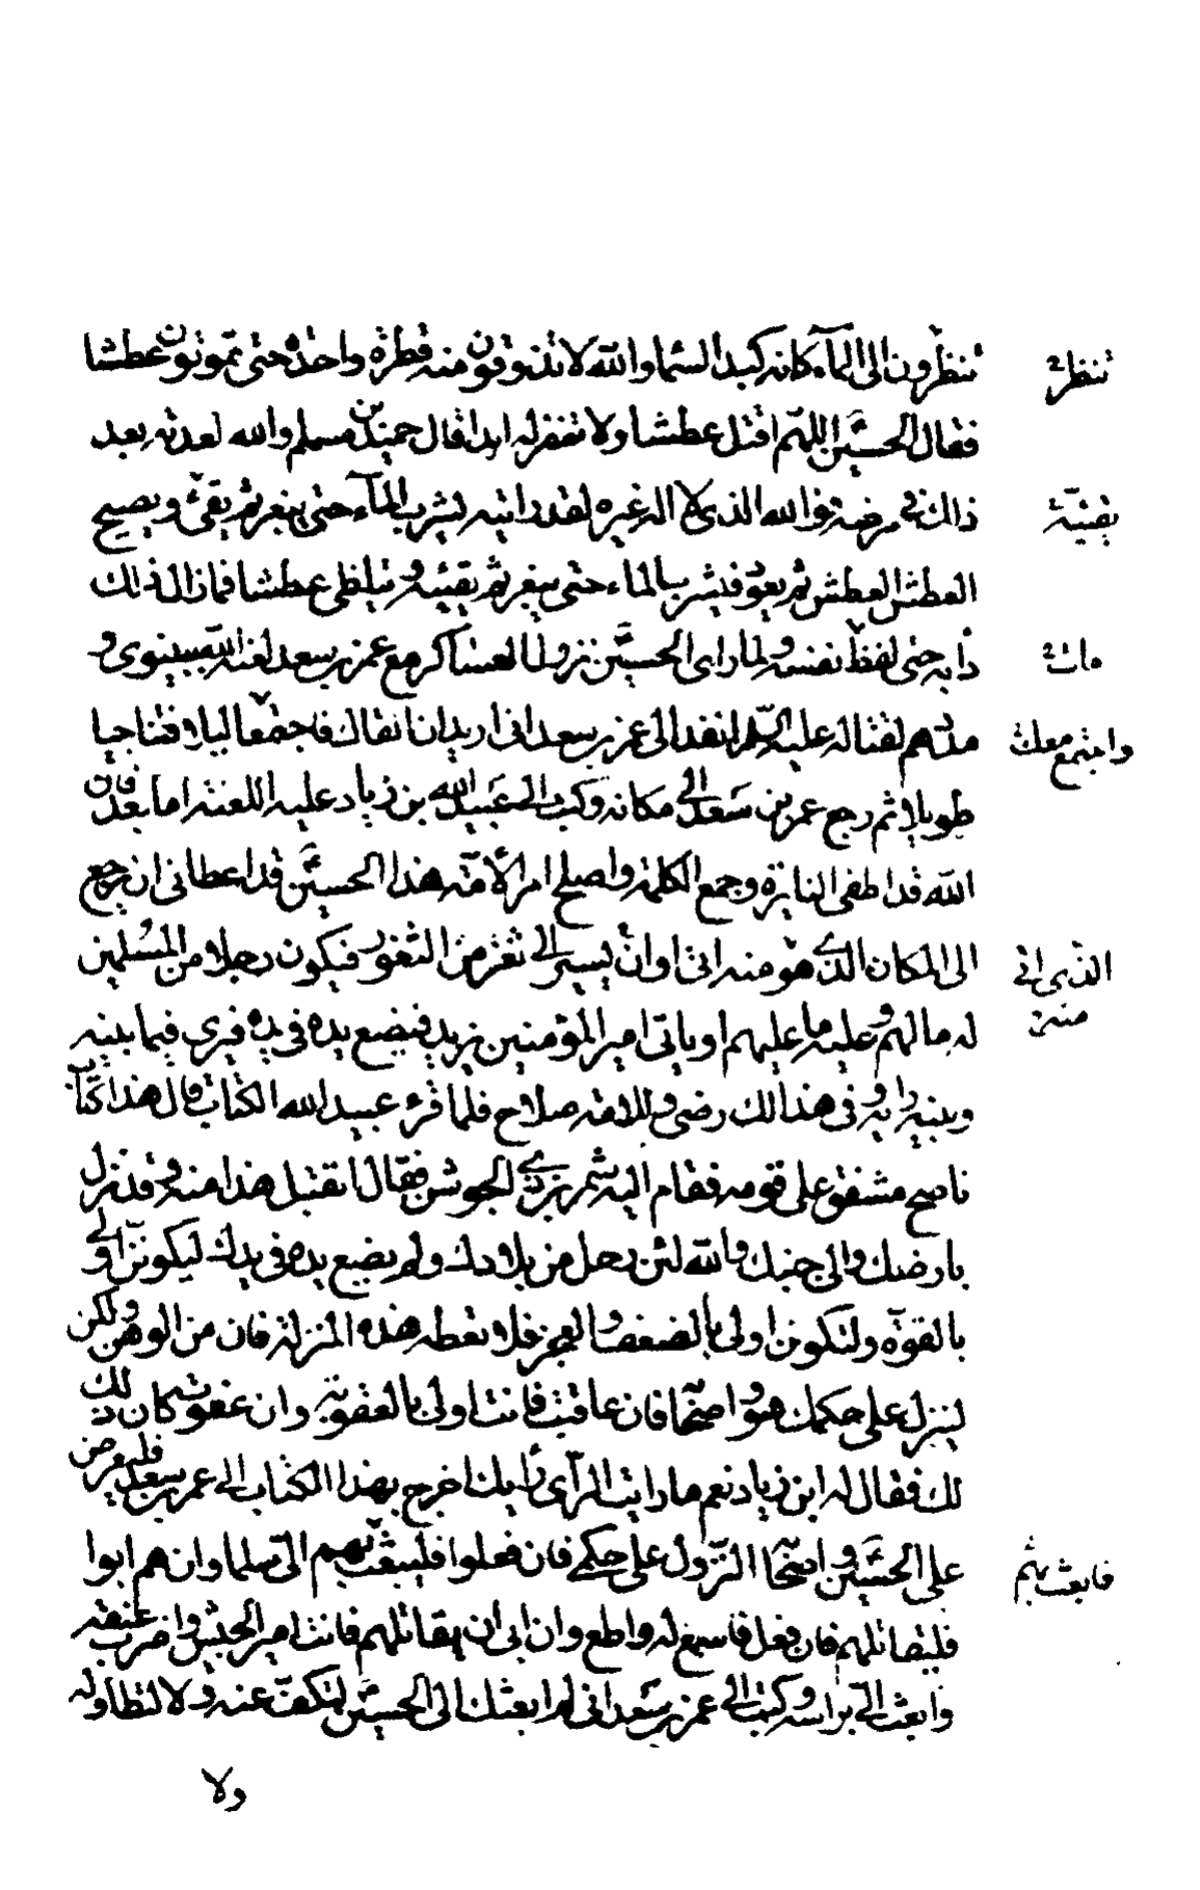 تنظرون الى المآء كانه كبد السما والله لا تذوقون منه قطرة واحدة حتى تموتون عطشا
تنظر
فقال الحسين اللهم اقتل عطشا ولا تغفر له ابدا قال حميد بن مسلم والله لعدته بعد
ذالك في مرضه فوالله الذى لا اله غيره لقد رايته يشرب المآء حتى يبغر ثم يقئ ويصيح
يقيئه
العطش العطش ثم يعود فيشرب الماء حتى يبغر ثم يقيئه ويتلظى عطشا فمازال ذلك
دابه حتى لفظ نفسه ولما راى الحسين نزول العساكر مع عمر بن سعد لعنه الله بنينوى و
مات
مددهم لقتاله عليه السلم انفد الى عمر بن سعد انى اريد ان القاك فاجتمعا ليلا فتناجيا
واجتمع معك
طويلا ثم رجع عمر بن سعد الى مكانه وكتب الى عبيد الله بن زياد عليه اللعنه اما بعد فان
الله قد اطفى النايرة وجمع الكلمة واصلح امر الأمة هذا الحسين قد اعطانى ان يرجع
الى المكان الذى هو منه اتى اوان يسير الى ثغر من الثغور فيكون رجلا من المسلمين
الذى اتى
منه
له مالهم وعليه ما عليهم او ياتى امير المؤمنين يزيد فيضع يده فى يده فيرى فيما بينه
وبينه رايه وفى هذا لك رضى وللامه صلاح فلما قرء عبيد الله الكتاب قال هذا كتاب
ناصح مشفق على قومه فقام اليه شمر بن ذى الجوشن فقال اتقبل هذا منه وقد نزل
بارضك والى جنبك والله لئن رحل من بلادك ولم يضع يده فى يدك ليكونن اولى
بالقوة ولتكونن اولى بالضعف والعجز فلا تعطه هذه المنزلة فان من الوهن ولكن
لينزل على حكمك هو واصحابه فان عاقبت فانت اولى بالعقوبة وان عفوت كان ذلك
لك فقال له ابن زياد نعم ما رايت الرأى رأيك اخرج بهذا الكتاب الى عمر بن سعد فليعرض
على الحسين واصحابه النزول على حكمى فان فعلوا فليبعث بهم الى سلما وان هم ابوا
فابعث بهم
فليقاتلهم فان فعل فاسمع له واطع وان ابى ان يقاتلهم فانت امير الجيش واضرب عنقه
وابعث الى براسه وكتب الى عمر بن سعد انى لم ابعثك الى الحسين لتكف عنه ولا لتطاوله
ولا